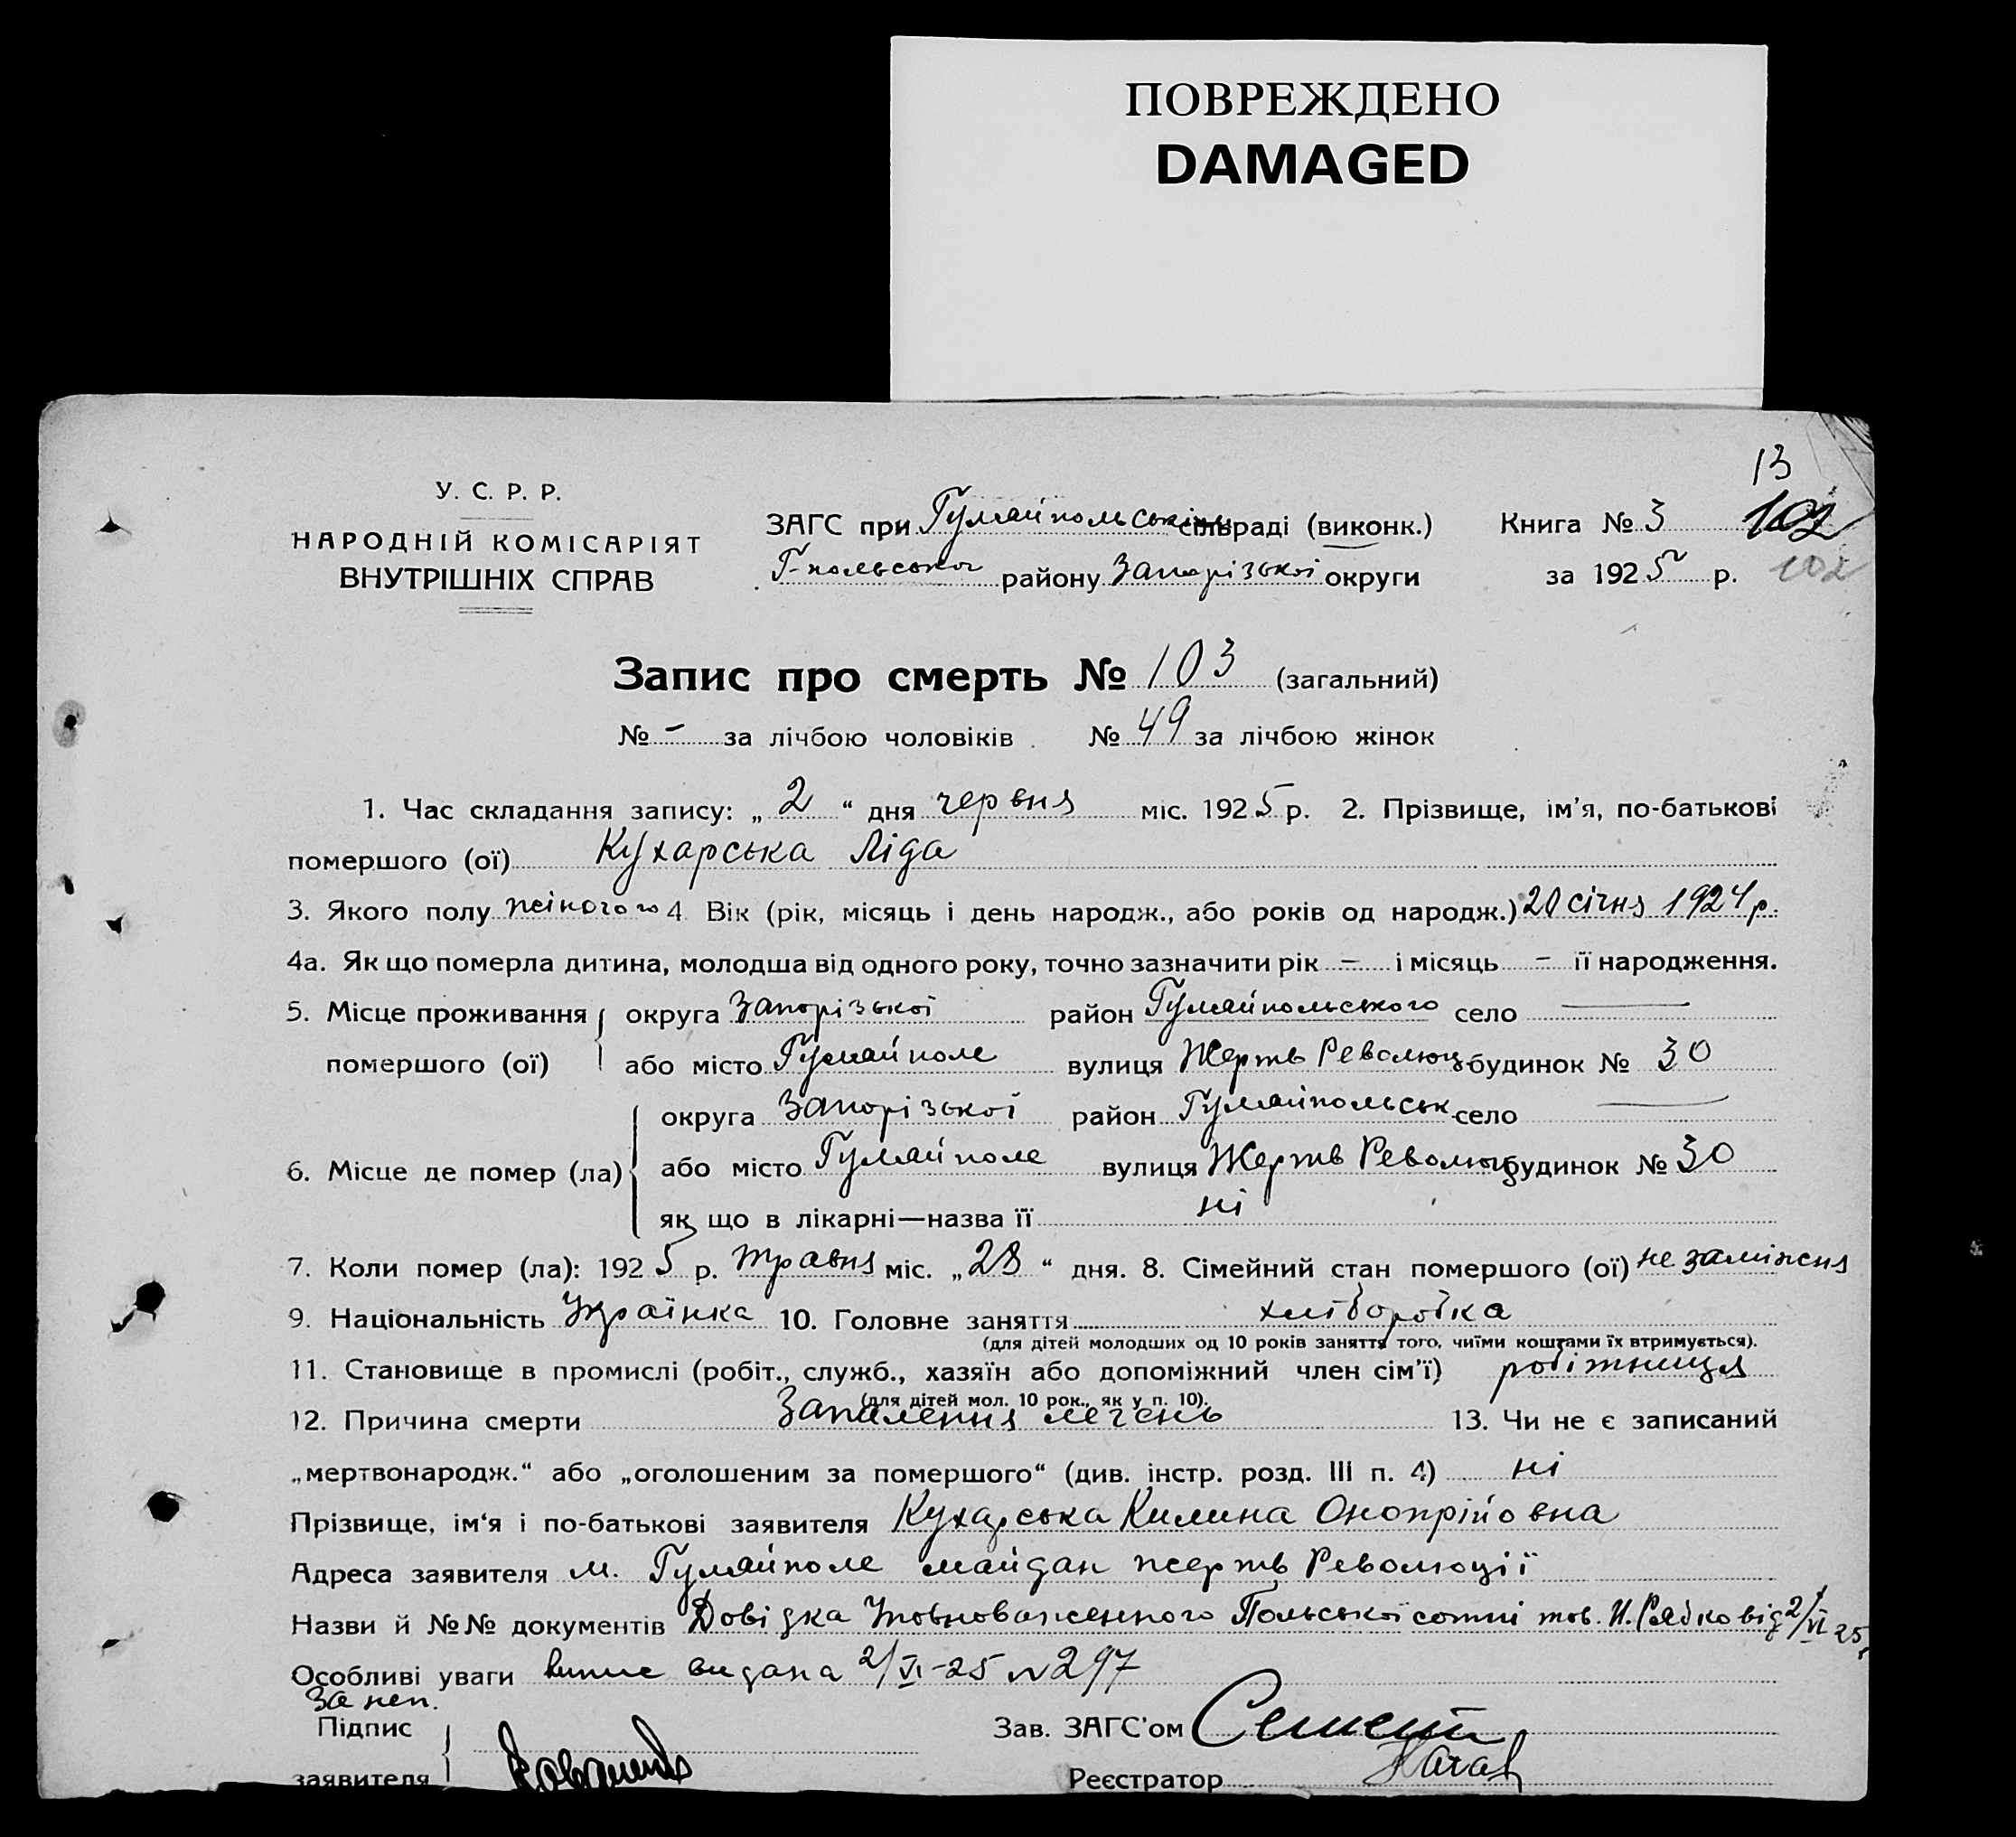 ПОВРЕЖДЕНО
DAMAGED
13
У. С. Р. Р.
НАРОДНІЙ КОМІСАРІЯТ
ВНУТРІШНІХ СПРАВ
ЗАГС при Гуляйпольськім сільраді (виконк.) Книга № 3 102
Г-польського району Запорізької округи за 1925 р. 102
Запис про смерть № 103 (загальний)
№ - за лічбою чоловіків. № 49 за лічбою жінок
1. Час складання запису: „ 2 “ дня червня міс. 1925 р. 2. Прізвище, ім’я, по-батькові
помершого (ої) Кухарська Ліда
3. Якого полу жіночого 4 Вік (рік, місяць і день народж., або років од народж.) 20 січня 1924 р.
4а. Як що померла дитина, молодша від одного року, точно зазначити рік — і місяць — її народження.
5. Місце проживання округа Запорізької район Гуляйпольського село —
помершого (ої) або місто Гуляйполе вулиця Жертв Революц. будинок № 30
округа Запорізької район Гуляйпольськ. село —
6. Місце де помер (ла) або місто Гуляйполе вулиця Жертв Революц. будинок № 30
як що в лікарні—назва її ні
7. Коли помер (ла): 1925 р. травня міс. „ 28 “ дня. 8. Сімейний стан помершого (ої) не заміжня
9. Національність Українка 10. Головне заняття хліборобка
(для дітей молодших од 10 років заняття того, чиїми коштами їх втримується).
11. Становище в промислі (робіт., служб., хазяїн або допоміжний член сім’ї) робітниця
(для дітей мол. 10 рок., як у п. 10).
12. Причина смерти Запалення легень 13. Чи не є записаний
„мертвонародж.“ або „оголошеним за помершого“ (див. інстр. розд. III п. 4) ні
Прізвище, ім‘я і по-батькові заявителя Кухарська Килина Онопрійовна
Адреса заявителя м. Гуляйполе майдан жертв Революції
Назви й №№ документів Довідка Уповноваженного Польської сотні тов. И. Рябко від 2/VI 25
Особливі уваги випис видана 2/VI-25 № 297
За неп.
Підпис Зав. ЗАГС’ом
заявителя Реєстратор